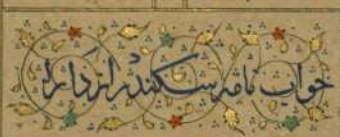 خواب نامه سکندر از دارا